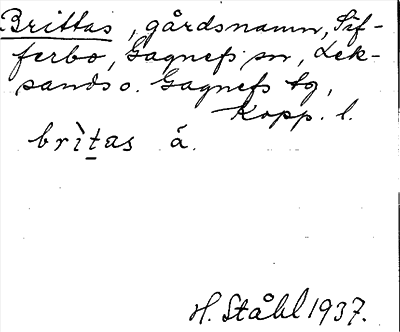 Brittas, gårdsnamn, Sif-
ferbo, Gagnefs sn, Lek-
sands o. Gagnefs tg,
Kopp. l.
brìṯas á.
H. Ståhl 1937.